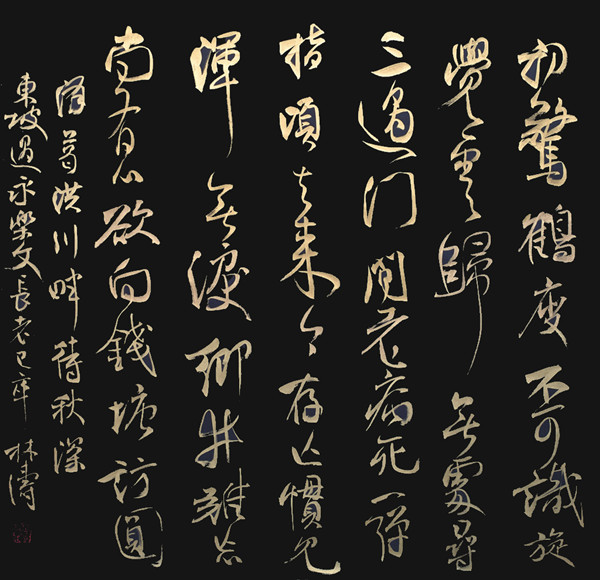 初驚鶴瘦不可識旋
覺雲歸無處尋
三過門間老病死一彈
指頃去來今存亡慣見
渾無淚鄉井難忘
尚有心欲向錢塘訪圓
澤葛洪川畔待秋深
東坡過永樂文長老已卒 林濤